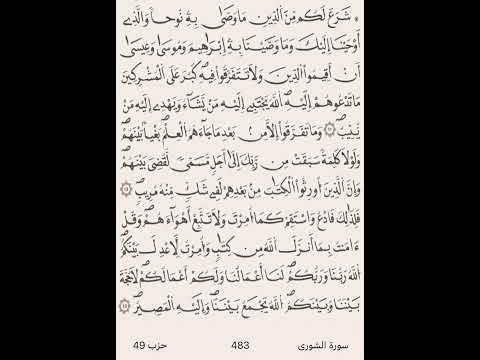 ۞ شَرَعَ لَكُم مِّنَ ٱلدِّينِ مَا وَصَّىٰ بِهِۦ نُوحاً وَٱلذِےٓ
أَوْحَيْنَآ إِلَيْكَ وَمَا وَصَّيْنَا بِهِۦٓ إِبْرَٰهِيمَ وَمُوسَىٰ وَعِيسَىٰٓ
أَنَ اَقِيمُواْ اُ۬لدِّينَ وَلَا تَتَفَرَّقُواْ فِيهِۖ كَبُرَ عَلَى اَ۬لْمُشْرِكِينَ
مَا تَدْعُوهُمُۥٓ إِلَيْهِۖ اِ۬للَّهُ يَجْتَبِےٓ إِلَيْهِ مَنْ يَّشَآءُ وَيَهْدِےٓ إِلَيْهِ مَنْ
يُّنِيبُۖ وَمَا تَفَرَّقُوٓاْ إِلَّا مِنۢ بَعْدِ مَا جَآءَهُمُ اُ۬لْعِلْمُ بَغْياَۢ بَيْنَهُمْۖ
وَلَوْلَا كَلِمَةٞ سَبَقَتْ مِن رَّبِّكَ إِلَىٰٓ أَجَلٖ مُّسَمّيٗ لَّقُضِيَ بَيْنَهُمْۖ
وَإِنَّ اَ۬لذِينَ أُورِثُواْ اُ۬لْكِتَٰبَ مِنۢ بَعْدِهِمْ لَفِے شَكّٖ مِّنْهُ مُرِيبٖۖ
فَلِذَٰلِكَ فَادْعُۖ وَاسْتَقِمْ كَمَآ أُمِرْتَۖ وَلَا تَتَّبِعَ اَهْوَآءَهُمْۖ وَقُلَ
اٰمَنتُ بِمَآ أَنزَلَ اَ۬للَّهُ مِن كِتَٰبٖۖ وَأُمِرْتُ لِأَعْدِلَ بَيْنَكُمُۖ
اُ۬للَّهُ رَبُّنَا وَرَبُّكُمْۖ لَنَآ أَعْمَٰلُنَا وَلَكُمُۥٓ أَعْمَٰلُكُمْۖ لَا حُجَّةَ
بَيْنَنَا وَبَيْنَكُمُۖ اُ۬للَّهُ يَجْمَعُ بَيْنَنَاۖ وَإِلَيْهِ اِ۬لْمَصِيرُۖ
سورة الشورى 483 حزب 49